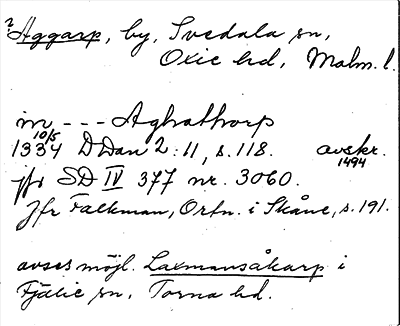 2 Aggarp, by, Svedala sn,
Oxie hd, Malm. l.
in --- Aghathorp
10/5
1334 DDan 2:11, s. 118. avskr. 1494
jfr SD IV 377 nr. 3060.
Jfr Falkman, Ortn. i Skåne, s. 191.
avses möjl. Laxmansåkarp i
Fjälie sn, Torna hd.